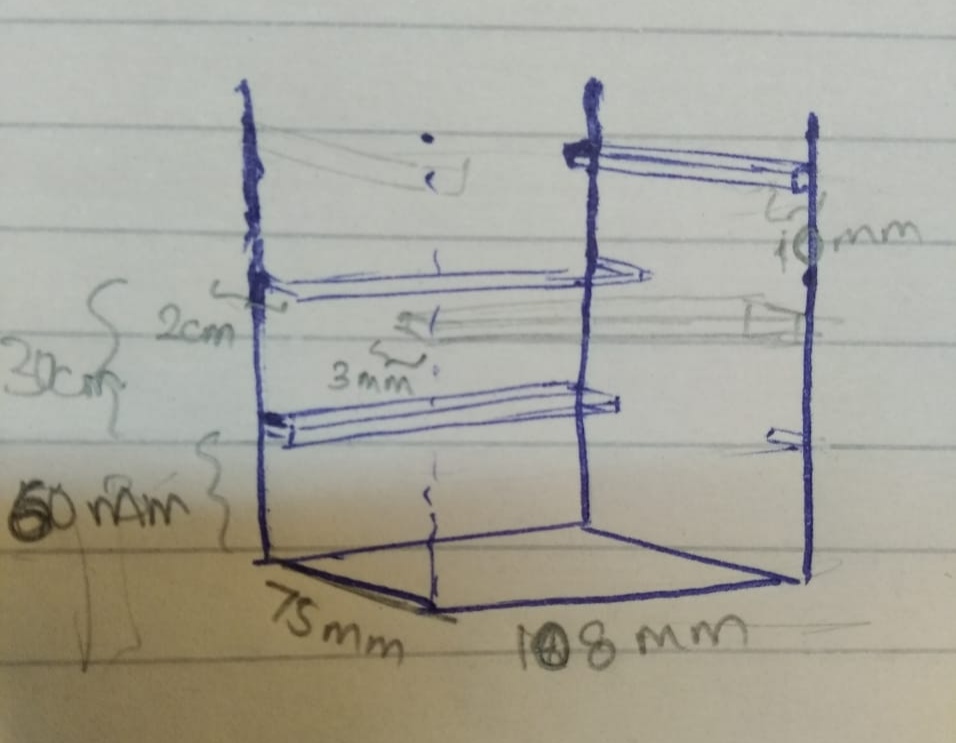 10mm
2cm
30cm
3mm
60 mm
75mm
108 mm